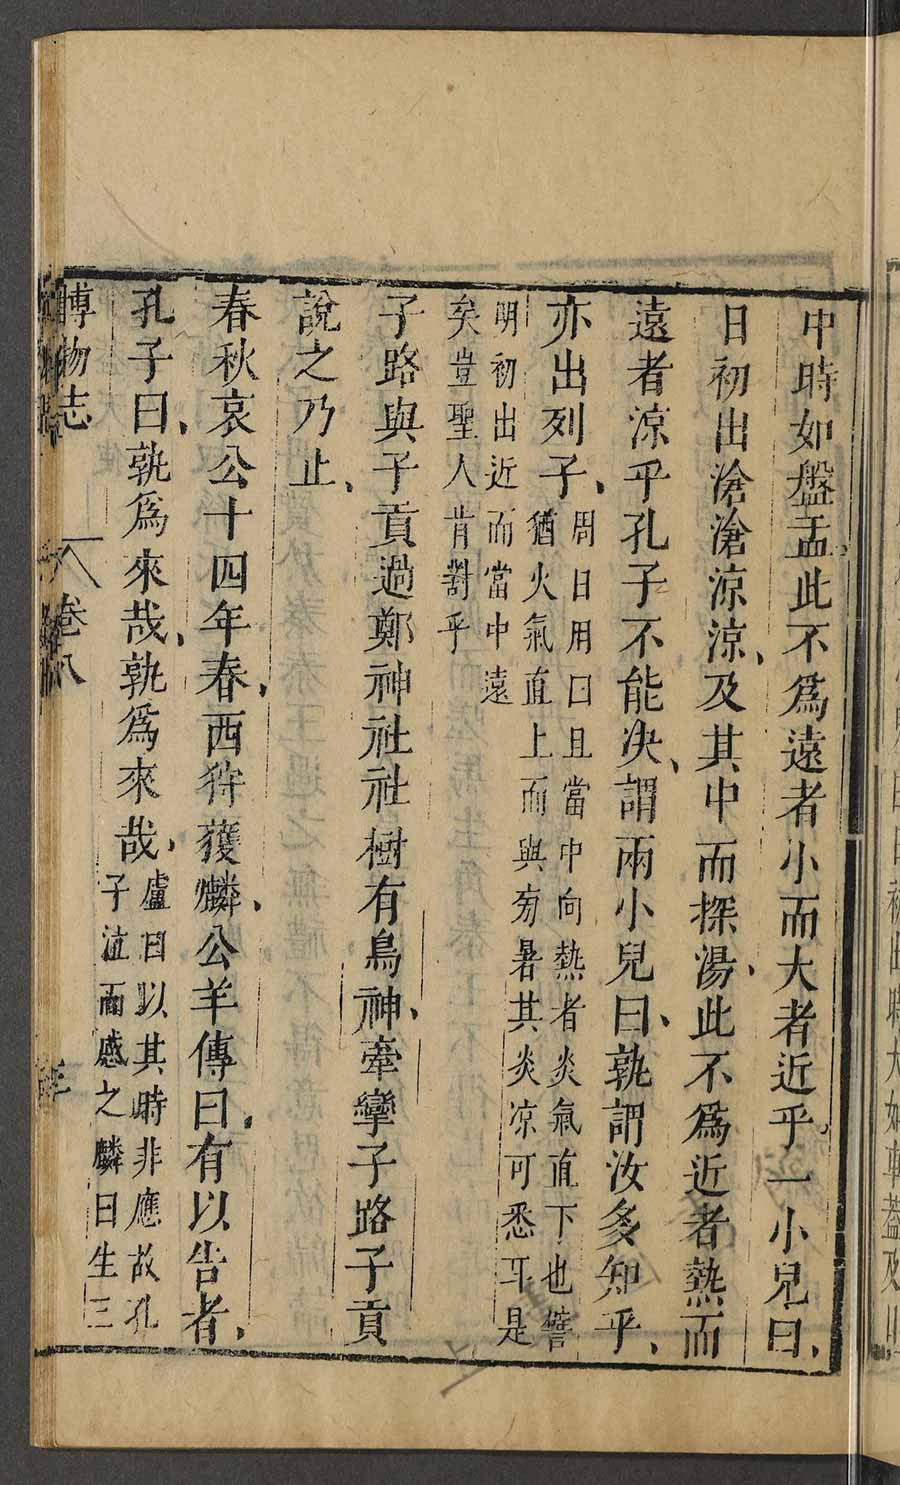 中時如盤盂此不爲遠者小而大者近乎一小兒曰
日初出滄滄涼涼及其中而探湯此不爲近者熱而
遠者涼乎孔子不能決謂兩小兒曰孰謂汝多知乎
亦出列子
周日用曰且當中向熱者炎氣直下也譬
猶火氣直上而與旁暑其炎凉可悉耳是
明初出近而當中遠
矣豈聖人肯對乎
子路與子貢過鄭神社社樹有鳥神牽攣子路子貢
說之乃止
春秋哀公十四年春西狩獲麟公羊傳曰有以告者
孔子曰孰爲來哉孰爲來哉
盧曰以其時非應故孔
子泣而感之麟曰生三
博物志 卷八